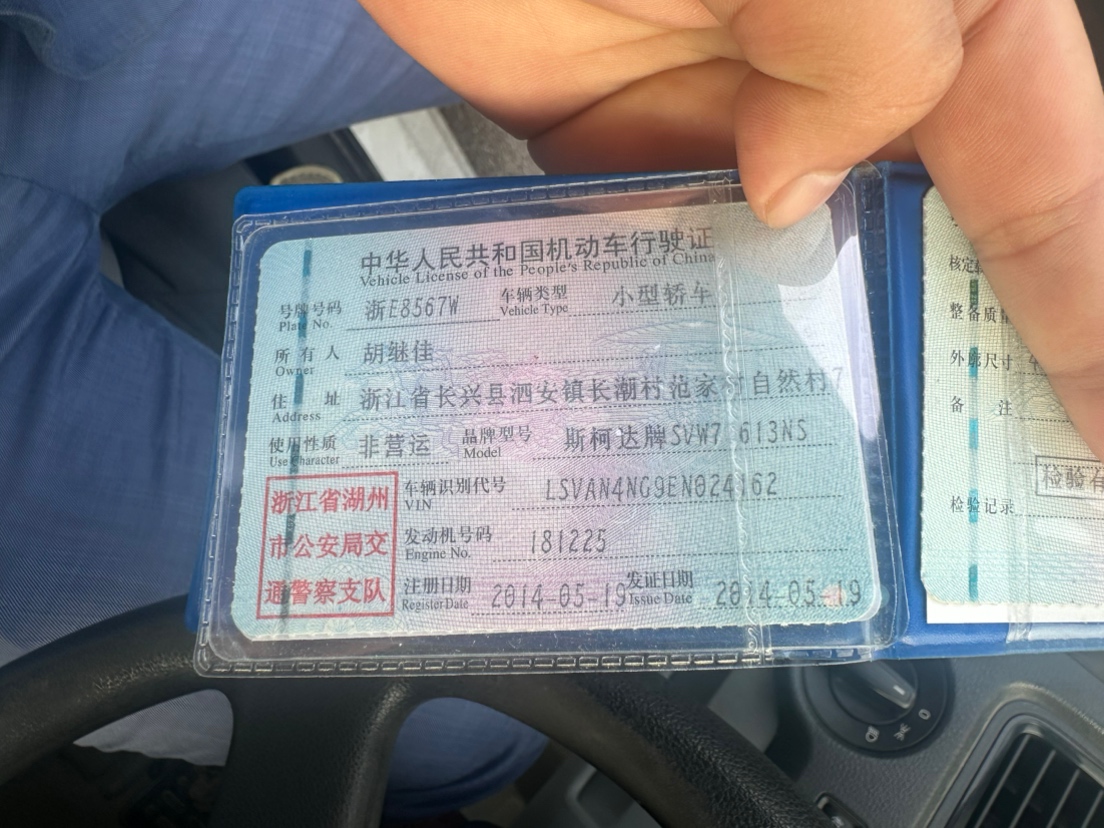 中华人民共和国机动车行驶证
Vehicle License of the People's Republic of China
号牌号码 浙E8567W 车辆类型 小型轿车
Plate No. Vehicle Type
所有人 胡继佳
Owner
住址 浙江省长兴县泗安镇长潮村范家村自然村7
Address
使用性质 非营运 品牌型号 斯柯达牌SVW71613NS
Use Character Model
浙江省湖州
市公安局交
通警察支队
车辆识别代号 LSVAN4NG9EN024162
VIN
发动机号码 181225
Engine No.
注册日期 2014-05-19 发证日期 2014-05-19
Register Date Issue Date
核定
整备质量
外廓尺寸
备注
检验有
检验记录